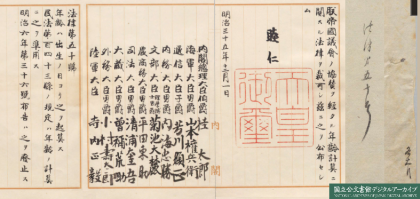 朕帝國議會ノ協贊ヲ經タル年齡計算ニ
關スル法律ヲ裁可シ茲ニ之ヲ公布セシ
ム
睦仁
天皇御璽
明治三十五年十二月一日
內閣總理大臣伯爵桂太郎
海軍大臣男爵山本權兵衞
遞信大臣子爵芳川顯正
內務大臣男爵內海忠勝
文部大臣理學博士男爵菊池大麓
農商務大臣男爵平田東助
司法大臣清浦奎吾
大藏大臣男爵曾禰荒助
外務大臣男爵小村壽太郎
陸軍大臣寺內正毅
內閣
法律第五十號
年齡ハ出生ノ日ヨリ之ヲ起算ス
民法第百四十三條ノ規定ハ年齡ノ計算
ニ之ヲ準用ス
明治六年第三十六號布告ハ之ヲ廢止ス
法律第五十号
国立公文書館デジタルアーカイブ